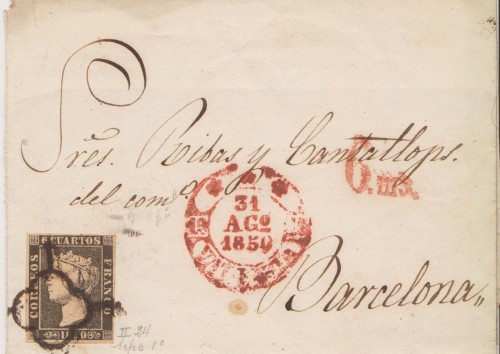 Sres. Ribas y Cantallops.
del como.
6.ms.
31
AGO
1850
Barcelona
6 CUARTOS
CORREOS
FRANCO
1850
II 24
tipo 1º